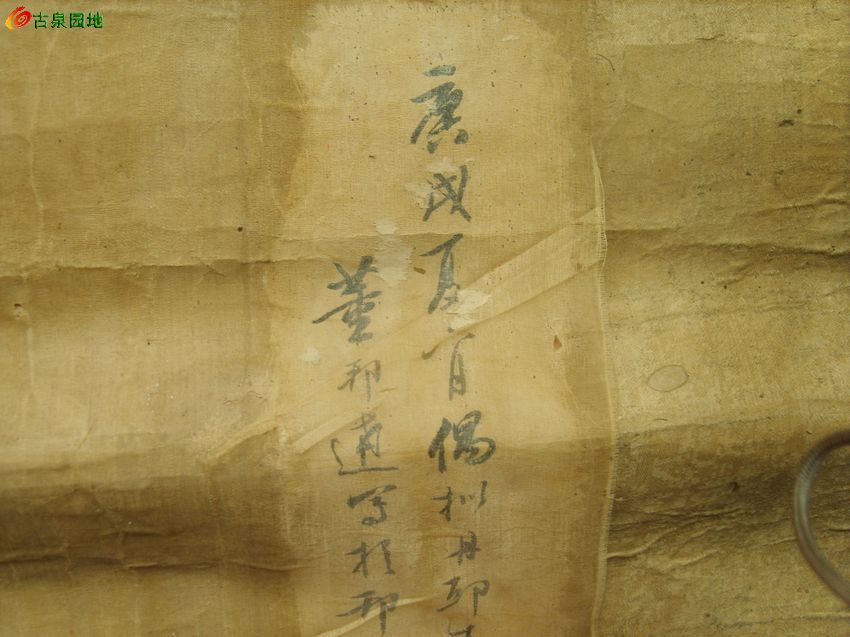 古泉园地
庚戌夏月偶拟丹邱
董邦達写于邗